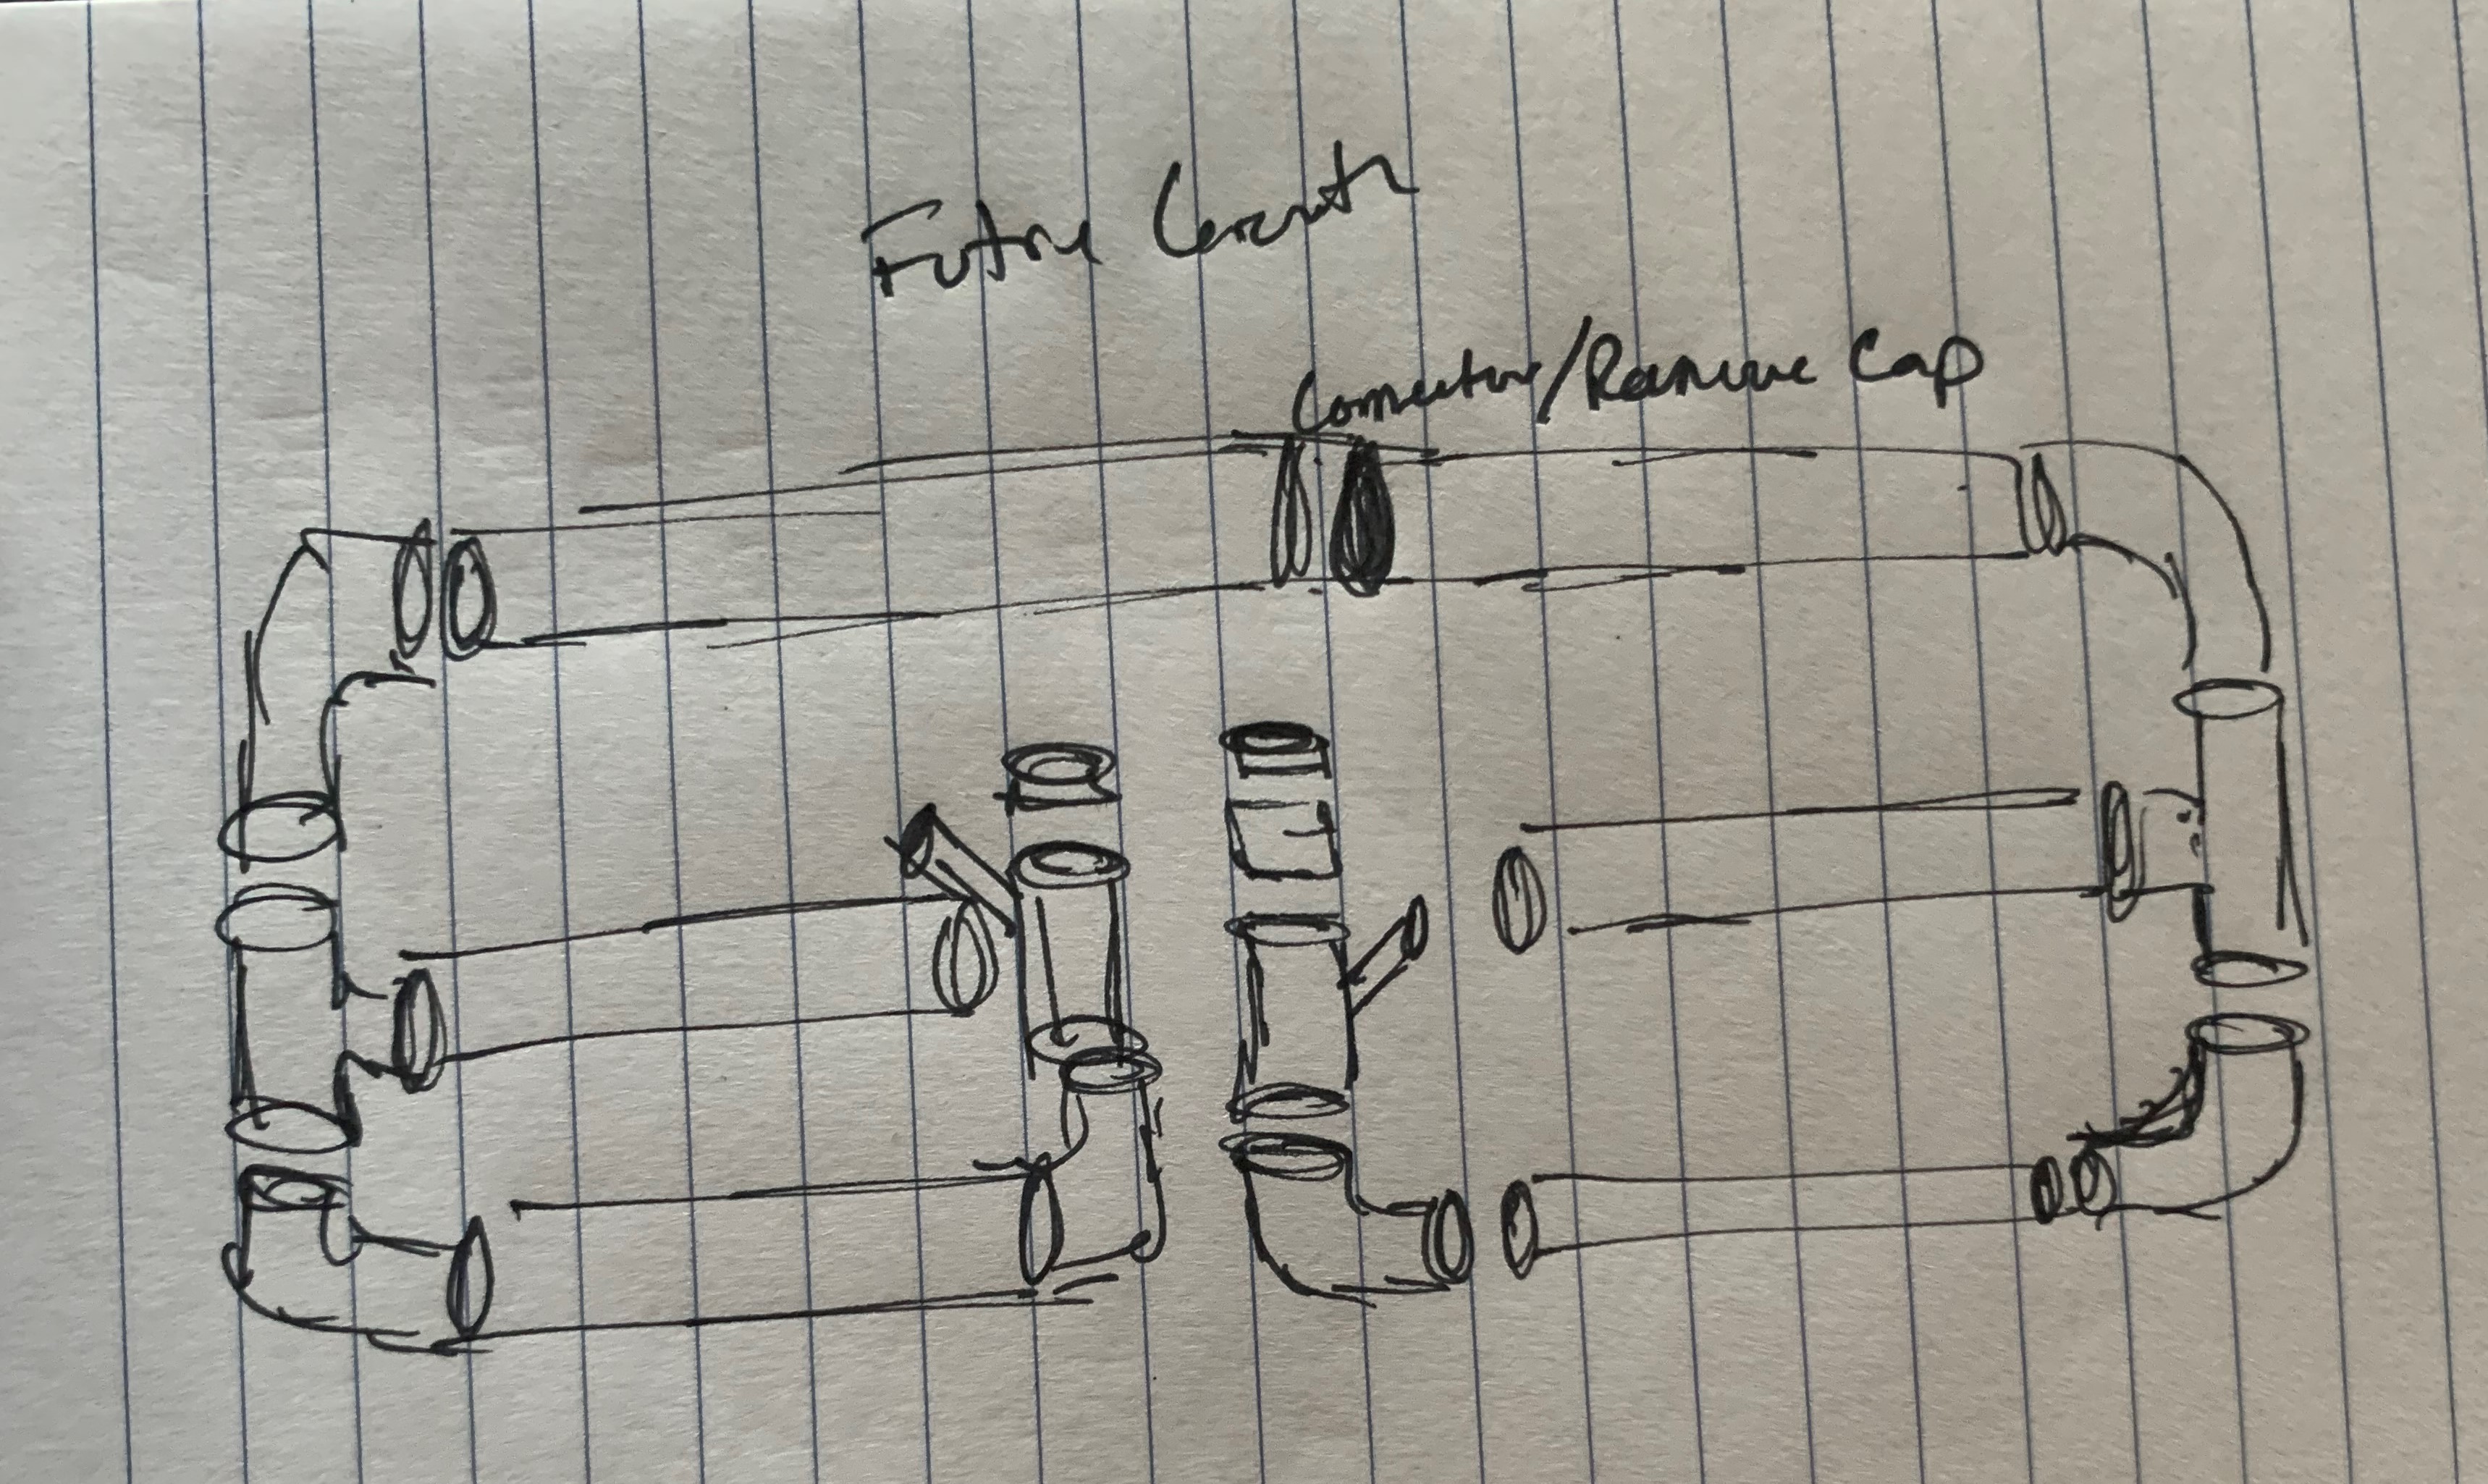 Future Growth
Connector/Remove Cap